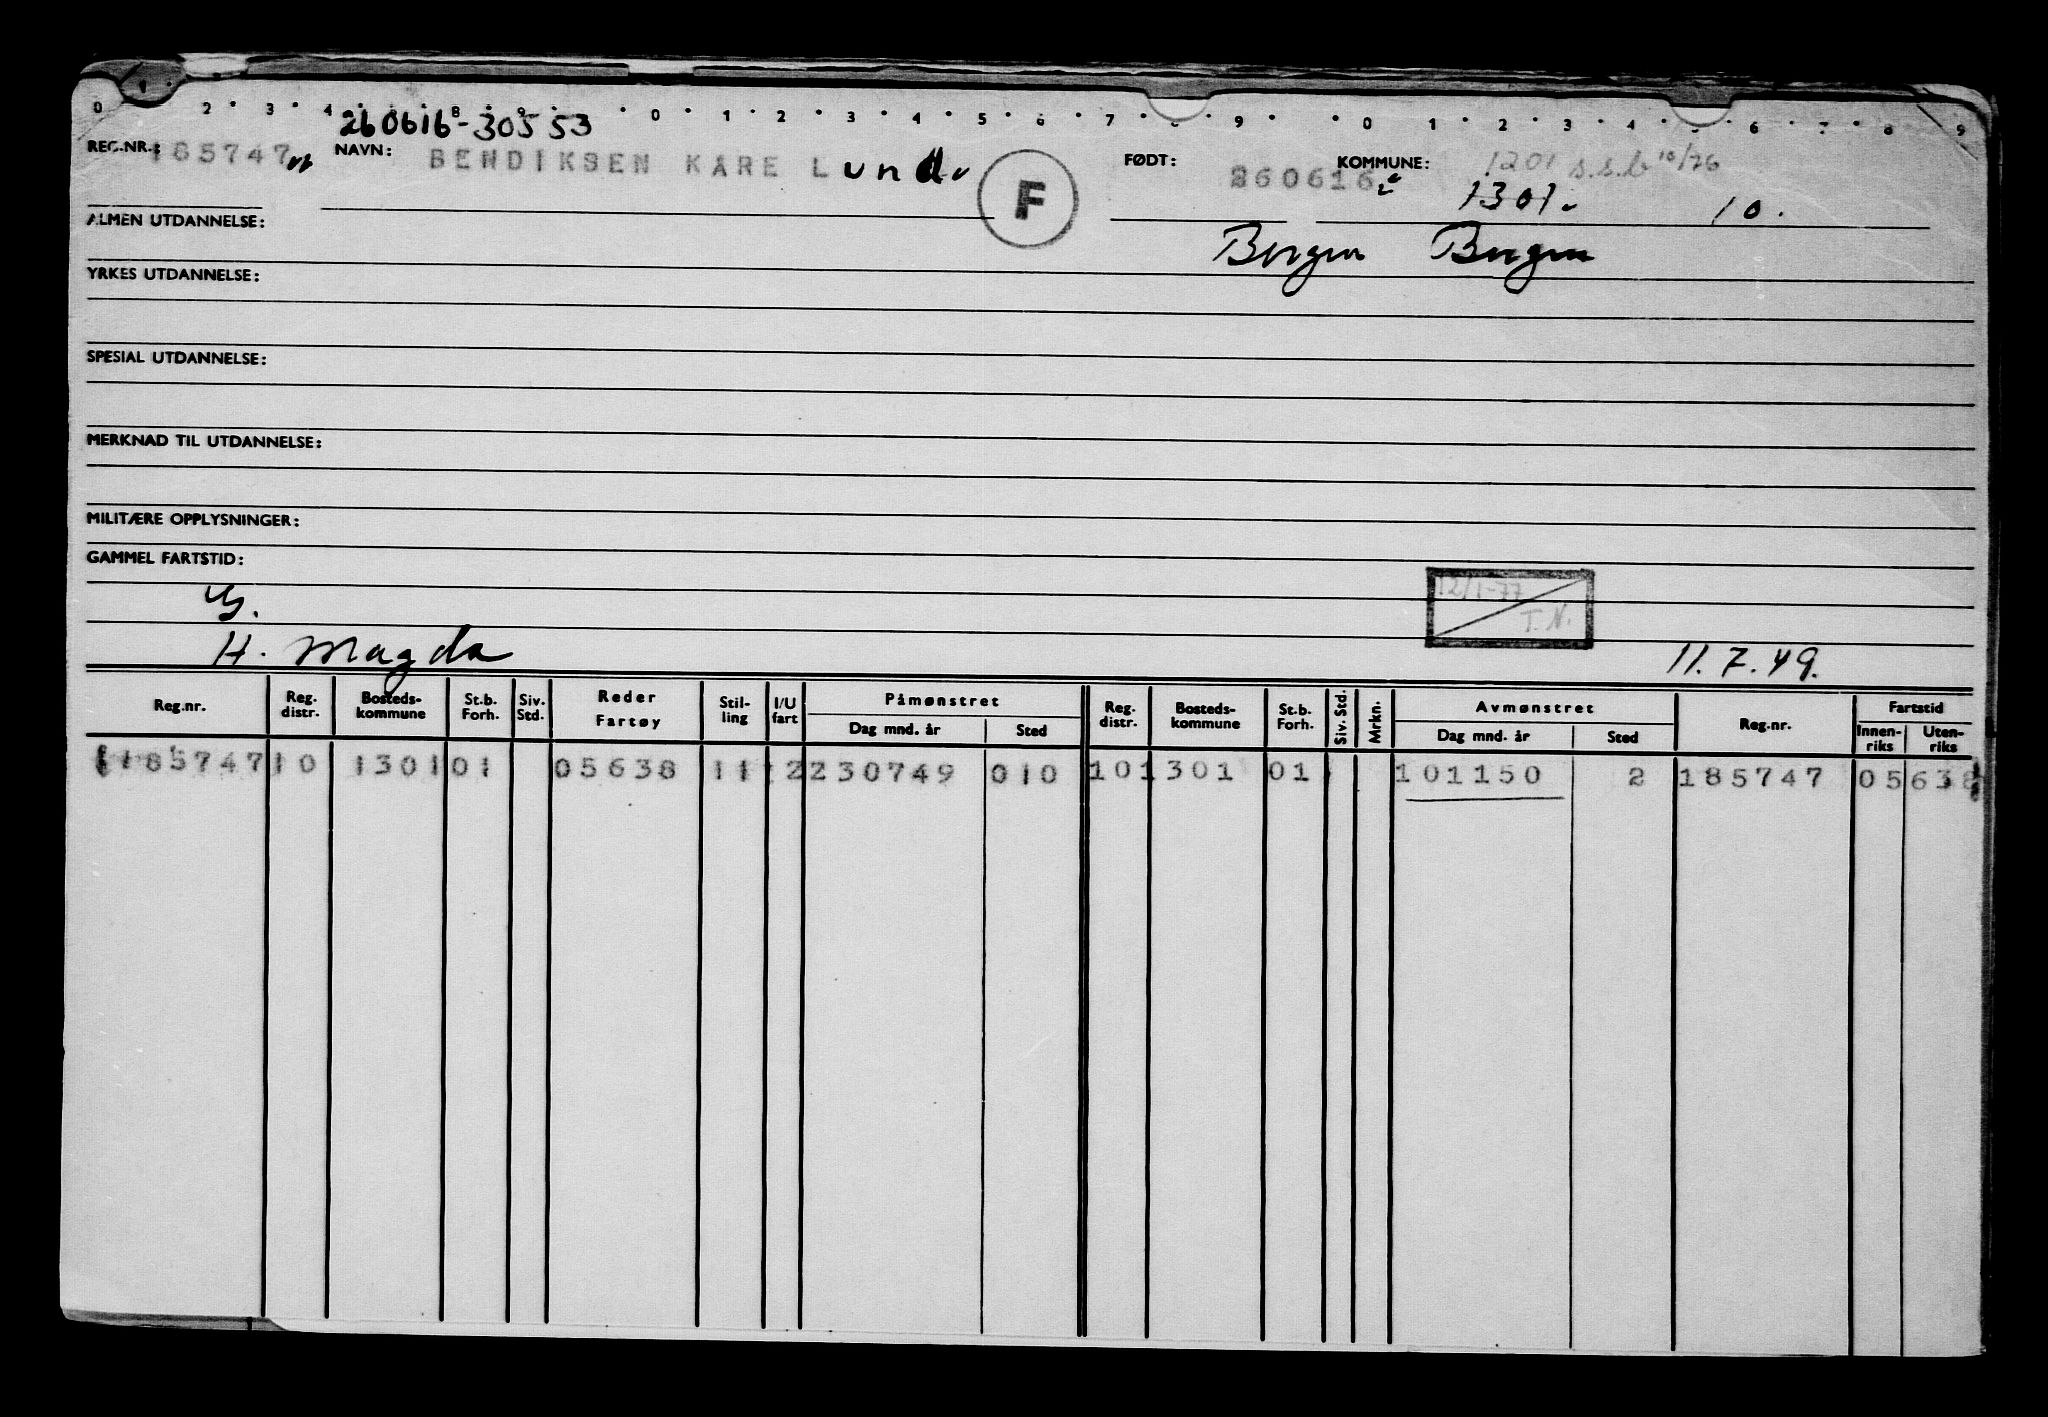 0 1 2 3 4 8 9 0 1 2 3 4 5 6 7 8 9 0 1 2 3 4 5 6 7 8 9
260616-30553
REG.NR.: 185747 NAVN: BENDIKSEN KARE Lund F FØDT: 260616 KOMMUNE: 1201 s.s.b 10/76
1301. 10.
ALMEN UTDANNELSE: Bergen Bergen
YRKES UTDANNELSE:
SPESIAL UTDANNELSE:
MERKNAD TIL UTDANNELSE:
MILITÆRE OPPLYSNINGER:
GAMMEL FARTSTID:
12/1-77
G. T.N.
H. Magda 11.7.49.
Reg.nr. Reg. distr. Bosteds-kommune St.b. Forh. Siv. Std. Reder Fartøy Stil-ling I/U fart Påmønstret Dag mnd. år Sted Reg. distr. Bosteds-kommune St.b. Forh. Siv. Std. Mrkn. Avmønstret Dag mnd. år Sted Reg.nr. Fartstid Innen-riks Uten-riks
185747 10 1301 01 05638 11 2 230749 010 10 1301 01 101150 2 185747 05638